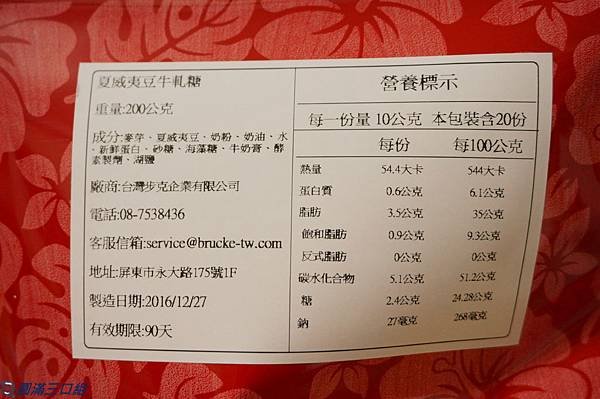 夏威夷豆牛軋糖
重量:200公克
成分:麥芽、夏威夷豆、奶粉、奶油、水
、新鮮蛋白、砂糖、海藻糖、牛奶膏、酵
素製劑、湖鹽
廠商:台灣步克企業有限公司
電話:08-7538436
客服信箱:service@brucke-tw.com
地址:屏東市永大路175號1F
製造日期:2016/12/27
有效期限:90天
營養標示
每一份量 10公克 本包裝含20份
每份 每100公克
熱量 54.4大卡 544大卡
蛋白質 0.6公克 6.1公克
脂肪 3.5公克 35公克
飽和脂肪 0.9公克 9.3公克
反式脂肪 0公克 0公克
碳水化合物 5.1公克 51.2公克
糖 2.4公克 24.28公克
鈉 27毫克 268毫克
圓滿三口組